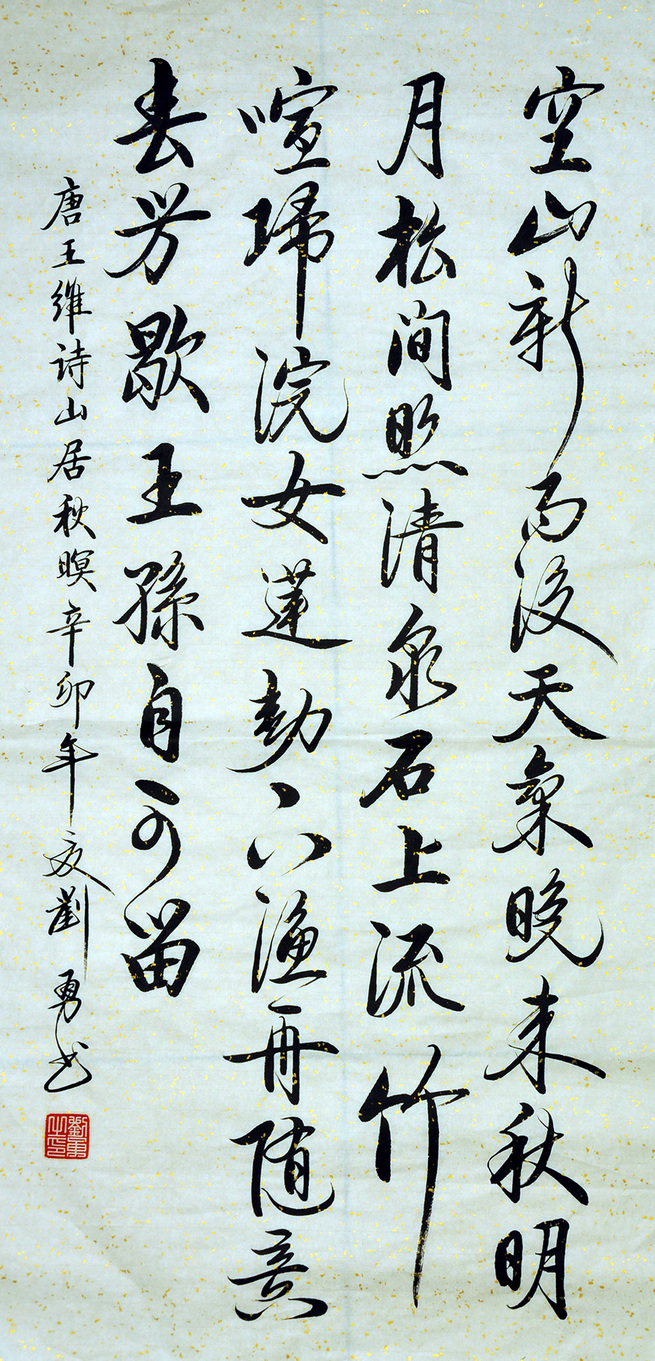 空山新雨後天氣晚来秋明
月松间照清泉石上流竹
喧歸浣女蓮動下漁舟随意
春芳歇王孫自可留
唐王維诗山居秋暝辛卯年夏劉勇书
劉勇之印